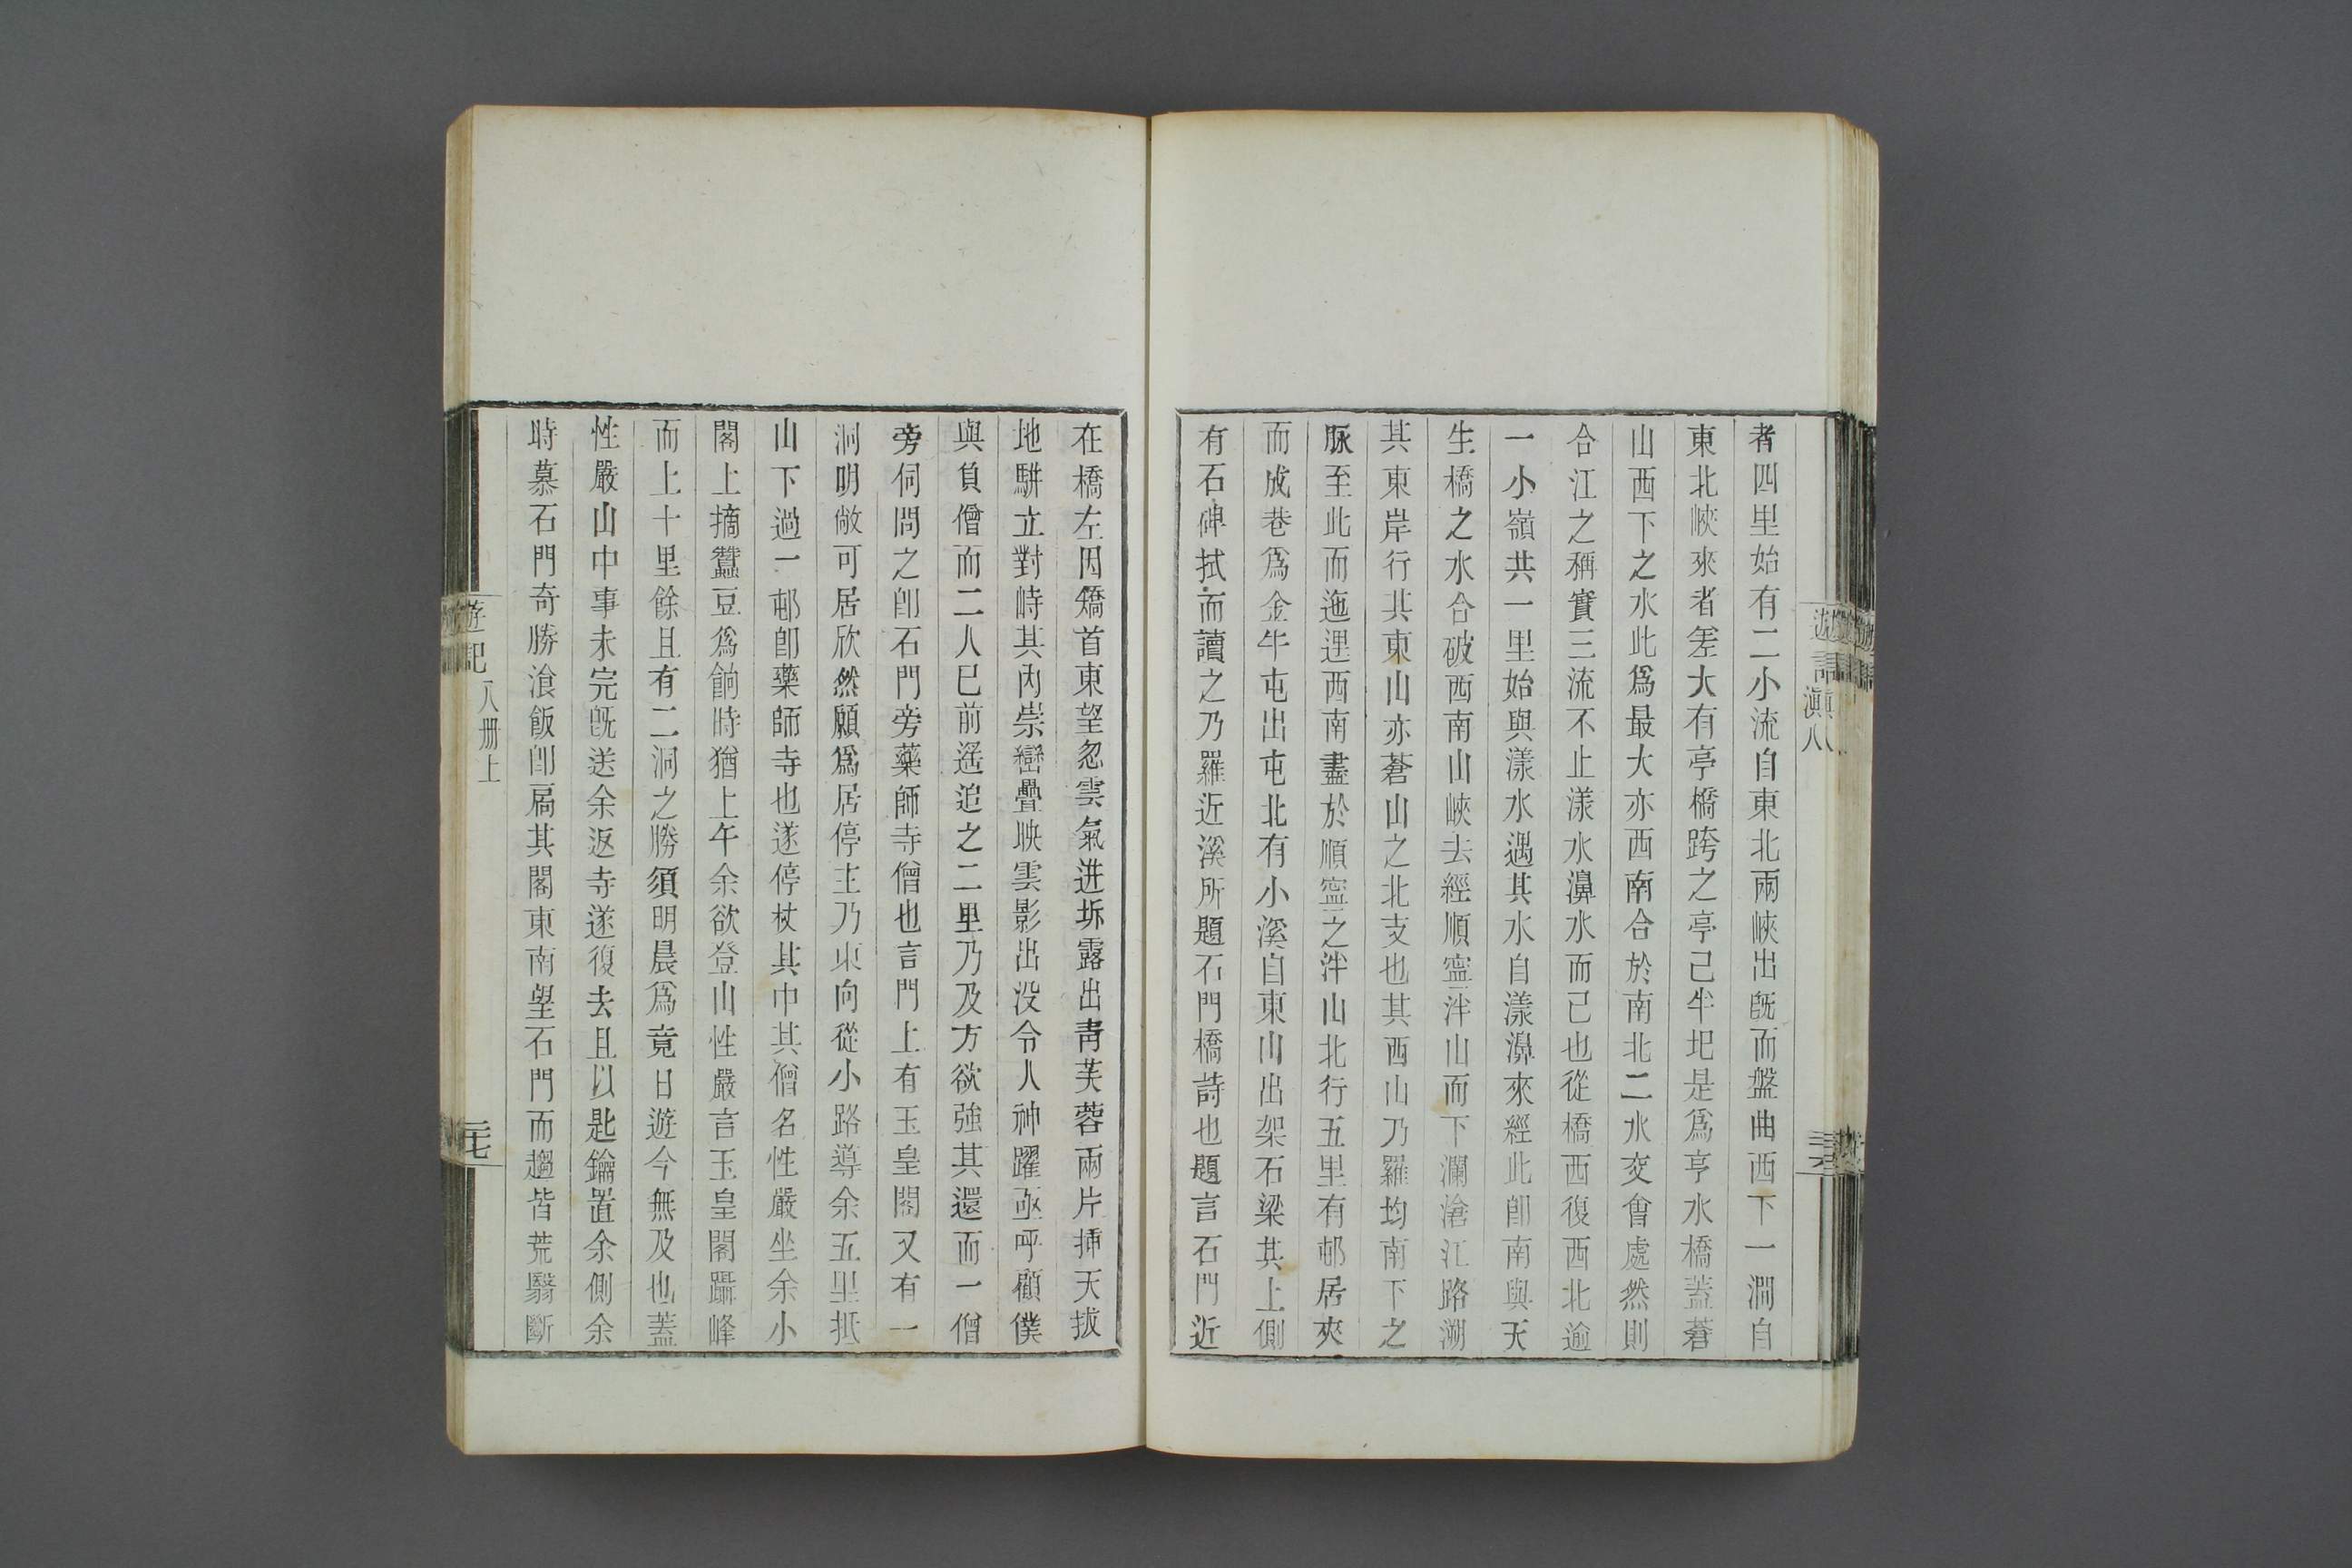 者四里始有二小流自東北兩峽出旣而盤曲西下一澗自
東北峽來者差大有亭橋跨之亭已半圮是爲亨水橋蓋蒼
山西下之水此爲最大亦西南合於南北二水交會處然則
合江之稱實三流不止漾水濞水而已也從橋西復西北逾
一小嶺共一里始與漾水遇其水自漾濞來經此卽南與天
生橋之水合破西南山峽去經順寧泮山而下瀾滄江路溯
其東岸行其東山亦蒼山之北支也其西山乃羅均南下之
脈至此而迤邐西南盡於順寧之泮山北行五里有邨居夾
而成巷爲金牛屯出屯北有小溪自東山出架石梁其上側
有石碑拭而讀之乃羅近溪所題石門橋詩也題言石門近
在橋左因矯首東望忽雲氣迸坼露出青芙蓉兩片插天拔
地駢立對峙其內崇巒疊映雲影出没令人神躍亟呼顧僕
與負僧而二人已前遙追之二里乃及方欲強其還而一僧
旁伺問之卽石門旁藥師寺僧也言門上有玉皇閣又有一
洞明敞可居欣然願爲居停主乃東向從小路導余五里抵
山下過一邨卽藥師寺也遂停杖其中其僧名性嚴坐余小
閣上摘蠶豆爲餉時猶上午余欲登山性嚴言玉皇閣躡峰
而上十里餘且有二洞之勝須明晨爲竟日遊今無及也蓋
性嚴山中事未完旣送余返寺遂復去且以匙鑰置余側余
時慕石門奇勝飡飯卽扃其閣東南望石門而趨皆荒翳斷
遊記 八册上